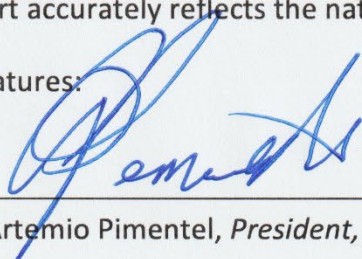 rt accurately reflects the nat
atures:
Artemio Pimentel, President,